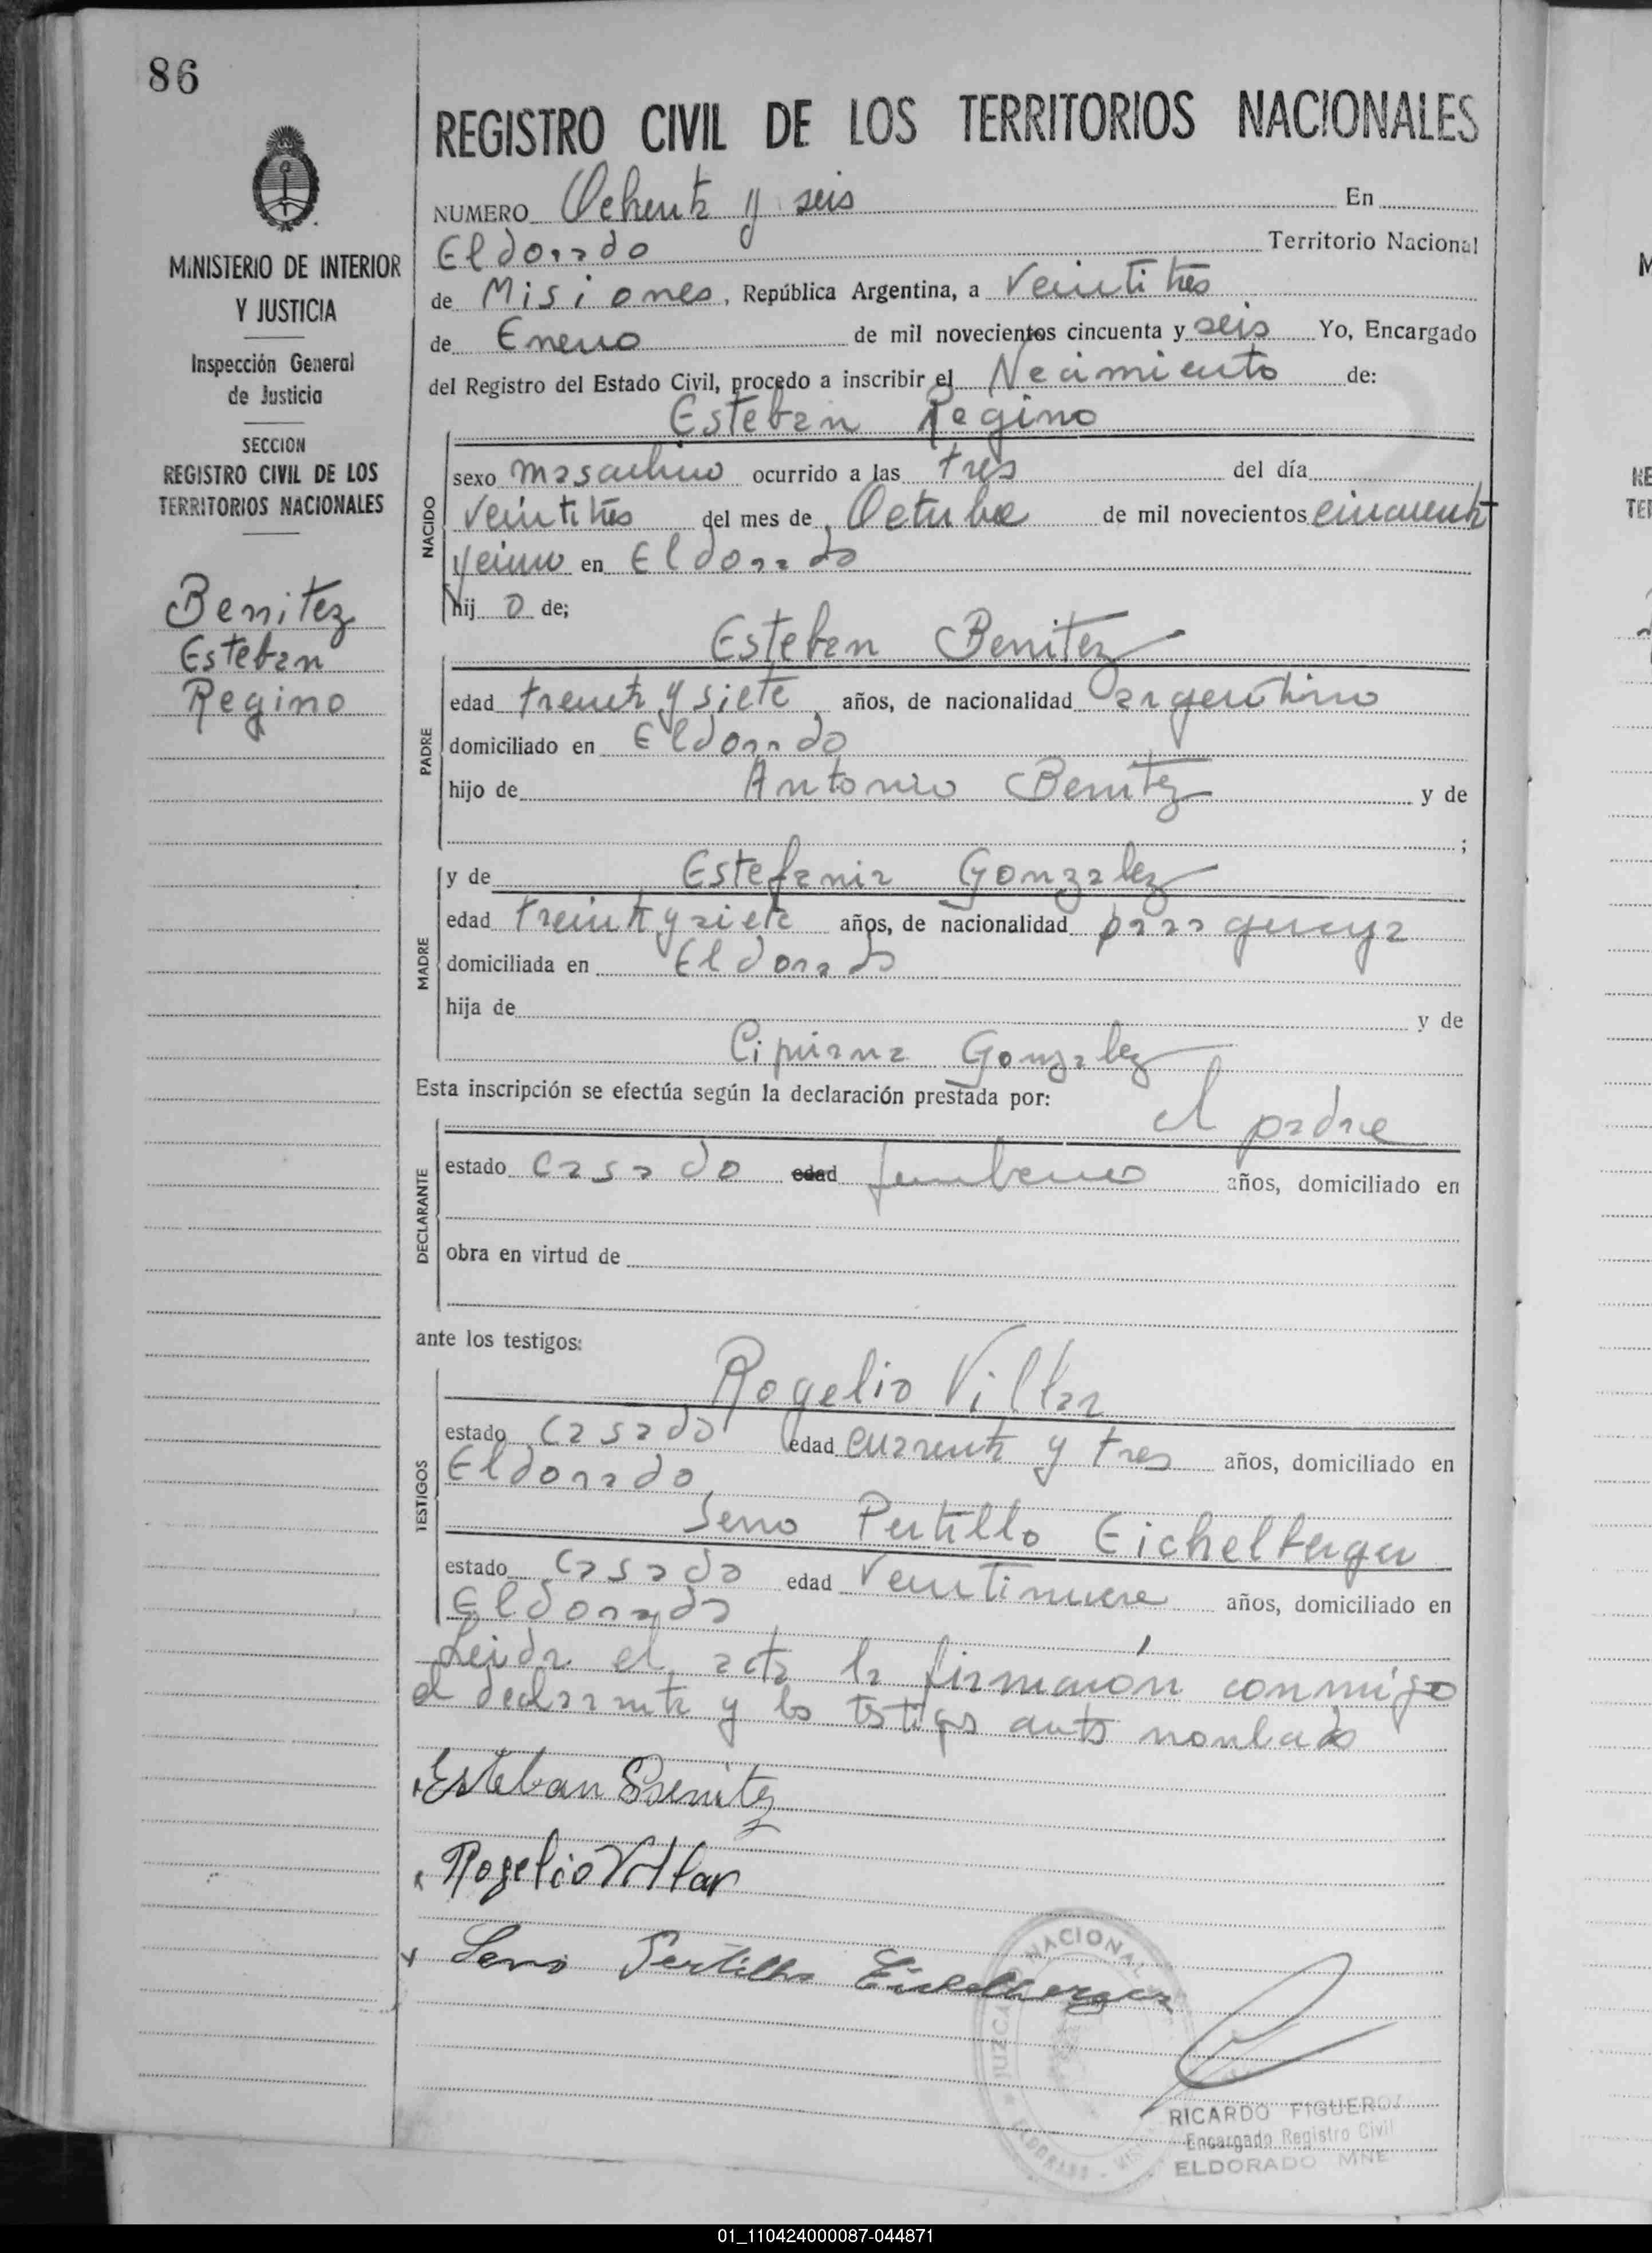 86
REGISTRO CIVIL DE LOS TERRITORIOS NACIONALES
NUMERO Ochenta y seis En
Eldorado Territorio Nacional
de Misiones, República Argentina, a veintitres
de Enero de mil novecientos cincuenta y seis Yo, Encargado
del Registro del Estado Civil, procedo a inscribir el Nacimiento de:
Esteban Regino
NACIDO
sexo masculino ocurrido a las tres del día
veintitres del mes de Octubre de mil novecientos cincuenta
y cinco en Eldorado
hij o de;
Esteban Benitez
PADRE
edad treinta y siete años, de nacionalidad argentino
domiciliado en Eldorado
hijo de Antonio Benitez y de
;
y de Estefania Gonzalez
MADRE
edad treinta y siete años, de nacionalidad paraguaya
domiciliada en Eldorado
hija de y de
Cipriana Gonzalez
Esta inscripción se efectúa según la declaración prestada por:
el padre
DECLARANTE
estado casado edad años, domiciliado en
obra en virtud de
ante los testigos:
Rogelio Villar
TESTIGOS
estado casado edad cuarenta y tres años, domiciliado en
Eldorado
Seno Pertillo Eichelberger
estado casado edad veintinueve años, domiciliado en
Eldorado
Leida el acta la firmarón conmigo
el declarante y los testigos antes nonbrado
Esteban Benitez
Rogelio Villar
Seno Pertillo Eichelberger
JUZGADO NACIONAL
ELDORADO
RICARDO FIGUEROA
Encargado Registro Civil
ELDORADO MNES
MINISTERIO DE INTERIOR
Y JUSTICIA
Inspección General
de Justicia
SECCION
REGISTRO CIVIL DE LOS
TERRITORIOS NACIONALES
Benitez
Esteban
Regino
01_110424000087-044871